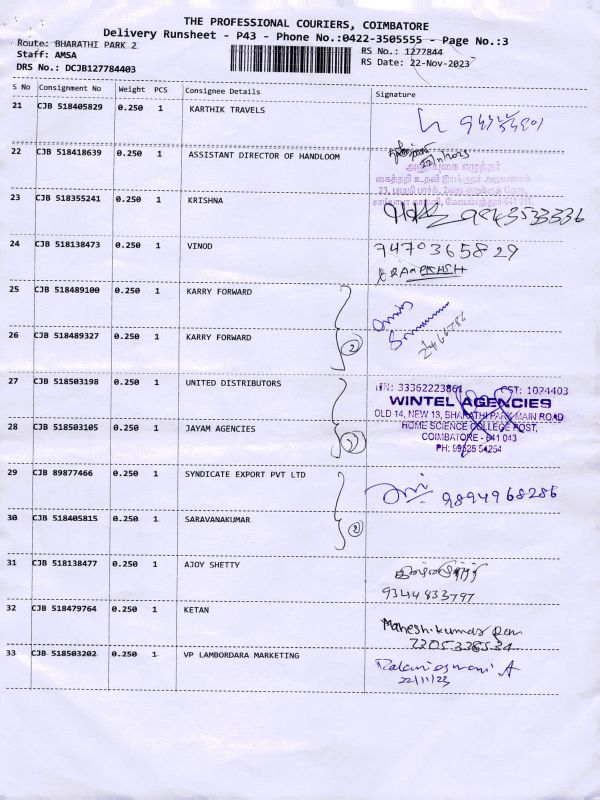 THE PROFESSIONAL COURIERS, COIMBATORE
Delivery Runsheet - P43 - Phone No.:0422-3505555 - Page No.:3
Route: BHARATHI PARK 2
Staff: AMSA
DRS No.: DCJB127784403
RS No.: 1277844
RS Date: 22-Nov-2023
S No Consignment No Weight PCS Consignee Details Signature
21 CJB 518405829 0.250 1 KARTHIK TRAVELS
22 CJB 518418639 0.250 1 ASSISTANT DIRECTOR OF HANDLOOM
22/11/2023
23 CJB 518355241 0.250 1 KRISHNA 9843533336
24 CJB 518138473 0.250 1 VINOD 9470365829
K RAMPRAKASH
25 CJB 518489100 0.250 1 KARRY FORWARD
26 CJB 518489327 0.250 1 KARRY FORWARD 2
27 CJB 518503198 0.250 1 UNITED DISTRIBUTORS
28 CJB 518503105 0.250 1 JAYAM AGENCIES
TIN: 33362223861 CST: 1024403
WINTEL AGENCIES
OLD 14, NEW 13, BHARATHI PARK MAIN ROAD
HOME SCIENCE COLLEGE POST,
COIMBATORE - 641 043
PH: 99526 54254
29 CJB 89877466 0.250 1 SYNDICATE EXPORT PVT LTD 9894968286
30 CJB 518405815 0.250 1 SARAVANAKUMAR 2
31 CJB 518138477 0.250 1 AJOY SHETTY
9344833797
32 CJB 518479764 0.250 1 KETAN Maheshkumar
33 CJB 518503202 0.250 1 VP LAMBORDARA MARKETING
22/11/23